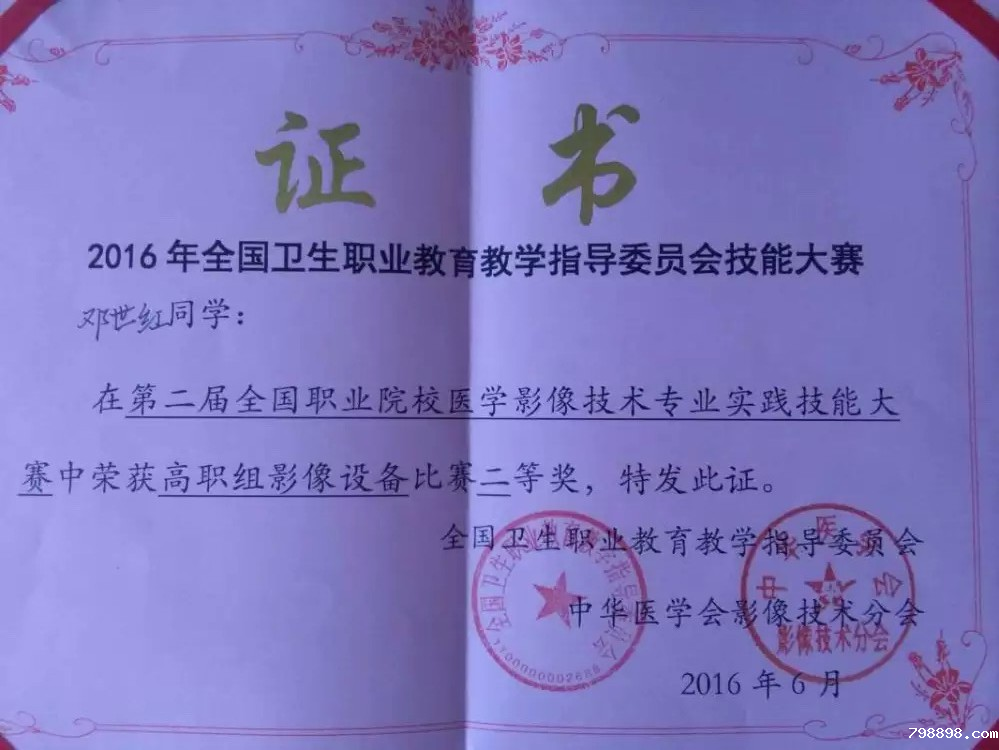 证 书
2016年全国卫生职业教育教学指导委员会技能大赛
邓世红同学：
在第二届全国职业院校医学影像技术专业实践技能大
赛中荣获高职组影像设备比赛二等奖，特发此证。
全国卫生职业教育教学指导委员会
中华医学会影像技术分会
2016年6月
全国卫生职业教育教学指导委员会
中华医学会
影像技术分会
798898.com